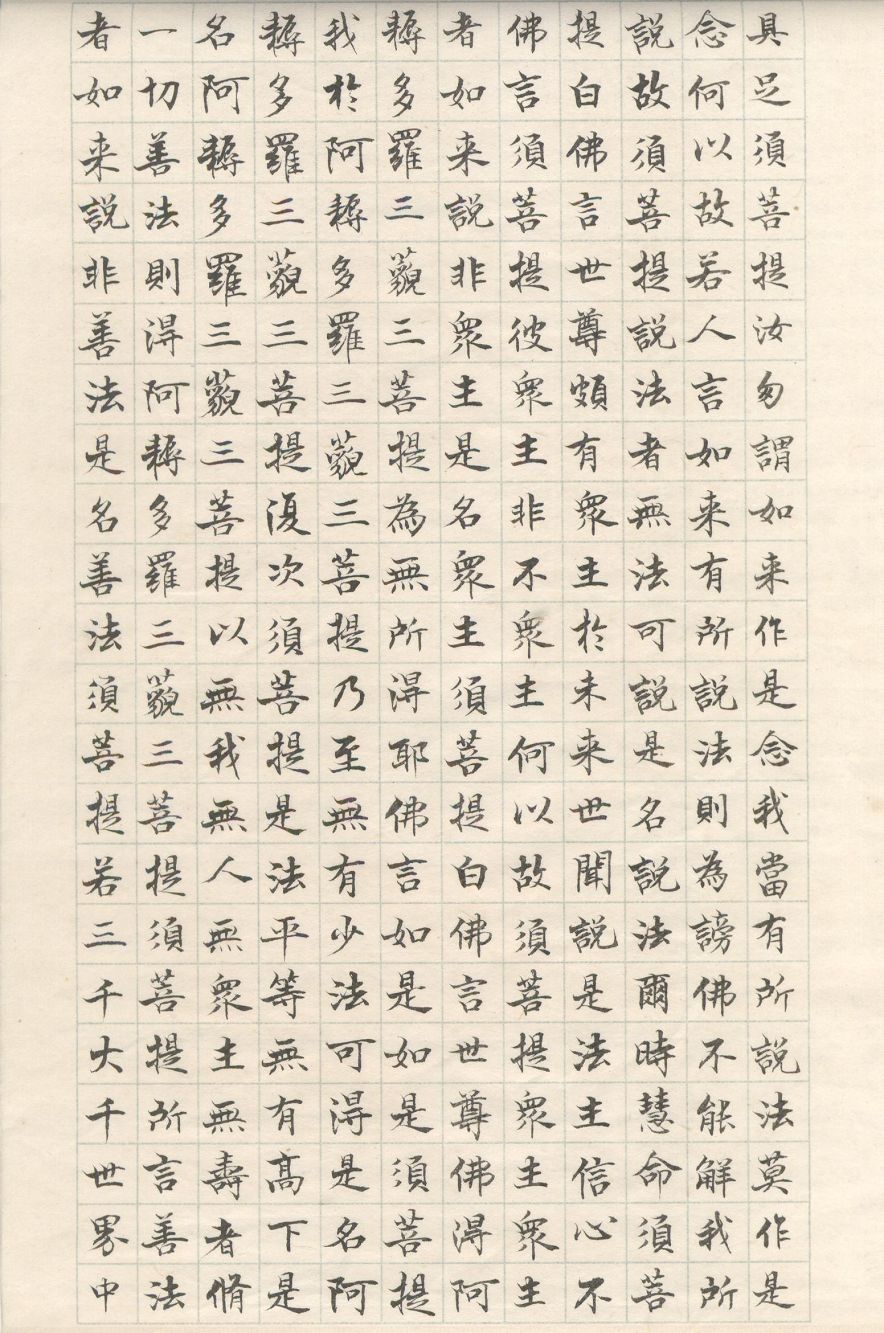 具足須菩提汝勿謂如来作是念我當有所說法莫作是
念何以故若人言如来有所說法則為謗佛不能解我所
說故須菩提說法者無法可說是名說法爾時慧命須菩
提白佛言世尊頗有衆生於未来世聞說是法生信心不
佛言須菩提彼衆生非不衆生何以故須菩提衆生衆生
者如来說非衆生是名衆生須菩提白佛言世尊佛得阿
耨多羅三藐三菩提為無所得耶佛言如是如是須菩提
我於阿耨多羅三藐三菩提乃至無有少法可得是名阿
耨多羅三藐三菩提復次須菩提是法平等無有髙下是
名阿耨多羅三藐三菩提以無我無人無衆生無壽者脩
一切善法則得阿耨多羅三藐三菩提須菩提所言善法
者如来說非善法是名善法須菩提若三千大千世界中